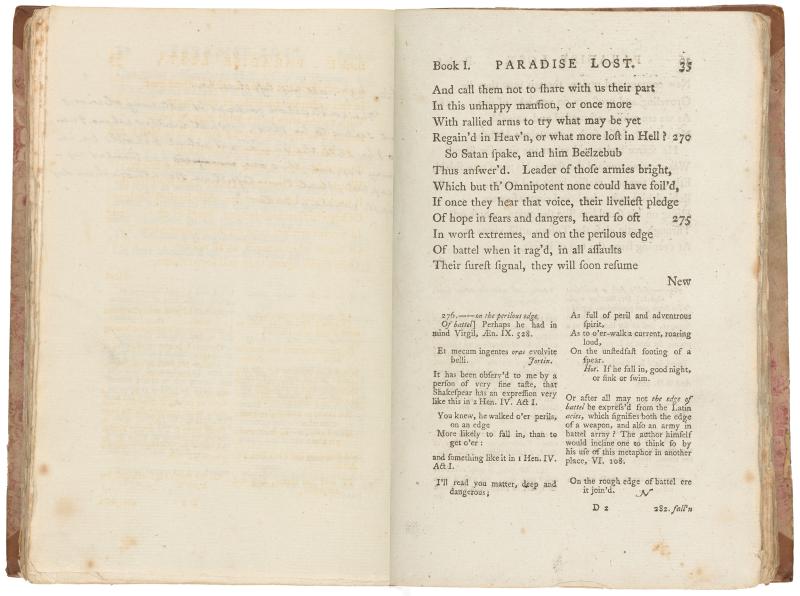 Book I. PARADISE LOST. 35
And call them not to ſhare with us their part
In this unhappy manſion, or once more
With rallied arms to try what may be yet
Regain'd in Heav'n, or what more loſt in Hell? 270
So Satan ſpake, and him Beëlzebub
Thus anſwer'd. Leader of thoſe armies bright,
Which but th' Omnipotent none could have foil'd,
If once they hear that voice, their livelieſt pledge
Of hope in fears and dangers, heard ſo oft 275
In worſt extremes, and on the perilous edge
Of battel when it rag'd, in all aſſaults
Their ſureſt ſignal, they will ſoon reſume
New
276.——on the perilous edge,
Of battel] Perhaps he had in
mind Virgil, Æn. IX. 528.
Et mecum ingentes oras evolvite
belli. Jortin.
It has been obſerv'd to me by a
perſon of very fine taſte, that
Shakeſpear has an expreſſion very
like this in 2 Hen. IV. Act I.
You knew, he walked o'er perils,
on an edge
More likely to fall in, than to
get o'er:
and ſomething like it in 1 Hen. IV.
Act I.
I'll read you matter, deep and
dangerous;
As full of peril and adventrous
ſpirit,
As to o'er-walk a current, roaring
loud,
On the unſtedfaſt footing of a
ſpear.
Hot. If he fall in, good night,
or ſink or ſwim.
Or after all may not the edge of
battel be expreſs'd from the Latin
acies, which ſignifies both the edge
of a weapon, and alſo an army in
battel array? The author himſelf
would incline one to think ſo by
his uſe of this metaphor in another
place, VI. 108.
On the rough edge of battel ere
it join'd. N
D 2 282. fall'n